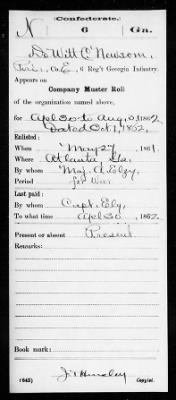 Confederate.
N 6 Ga.
DeWitt C Newsom,
Pri., Co. E, 6 Reg't Georgia Infantry.
Appears on
Company Muster Roll
of the organization named above,
for Apl 30 to Aug 31, 1862
Dated Oct 1, 1862.
Enlisted:
When May 27, 1861.
Where Atlanta Ga.
By whom Maj. A Elzy,
Period for War
Last paid:
By whom Capt. Ely,
To what time Apl 30, 1862.
Present or absent Present
Remarks:
Book mark:
(642) Copyist.